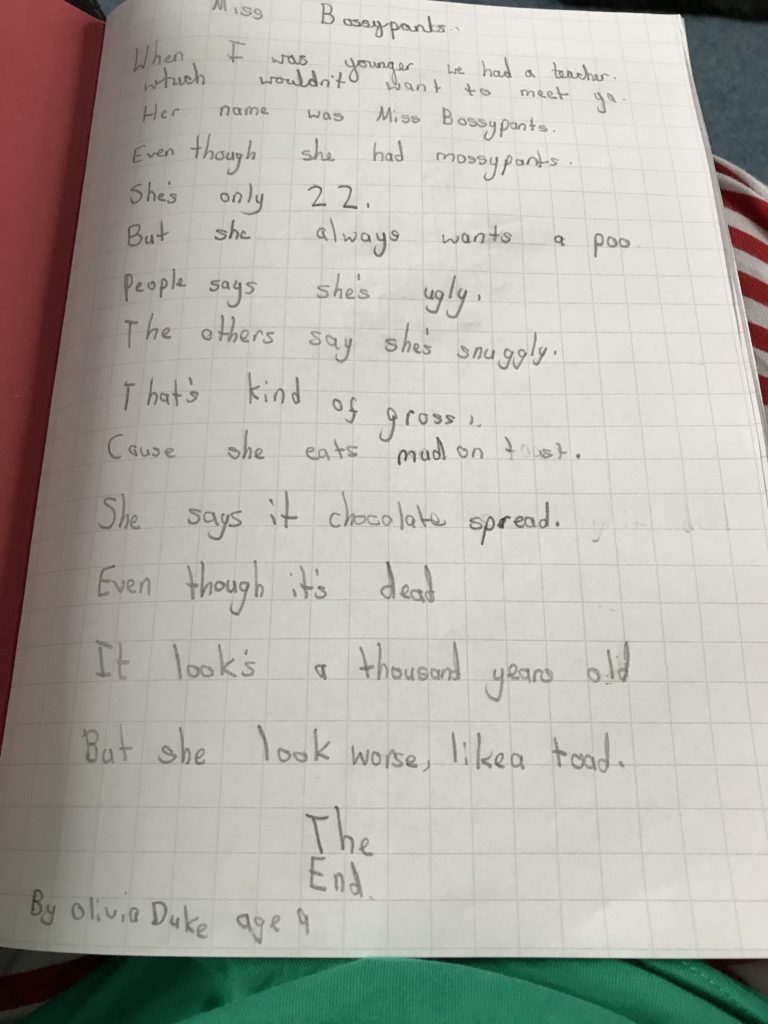 Miss Bossypants..
When I was younger we had a teacher.
which wouldn't want to meet ya.
Her name was Miss Bossypants.
Even though she had mossypants.
She's only 22.
But she always wants a poo
People says she's ugly.
The others say she's snuggly.
That's kind of gross..
Cause she eats mud on toast.
She says it chocolate spread.
Even though it's dead
It look's a thousand years old
But she look worse, like a toad.
The
End.
By Olivia Duke age 9